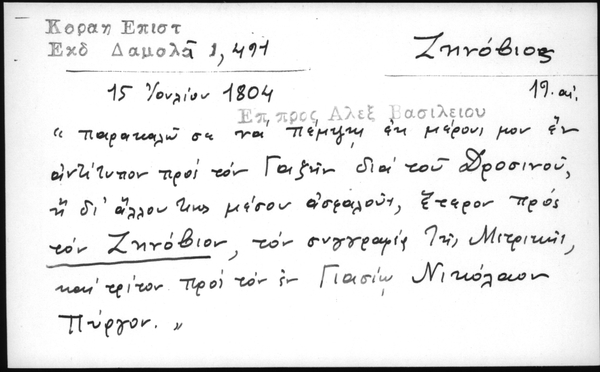 Κοραη Επιστ
Εκδ Δαμολᾶ 1, 491
Ζηνόβιος
15 Ἰουλίου 1804
19. αἰ.
Επ, προς Αλεξ Βασιλειου
" παρακαλῶ σε νὰ πέμψῃς ἐκ μέρους μου ἓν
ἀντίτυπον πρὸς τὸν Γαζῆν διὰ τοῦ Δροσινοῦ,
ἢ δι' ἄλλου τινος μέσου ἀσφαλοῦς, ἕτερον πρὸς
τὸν Ζηνόβιον, τὸν συγγραφέα τῆς Μετρικῆς,
καὶ τρίτον πρὸς τὸν ἐν Γιασίῳ Νικόλαον
Πύργον. "